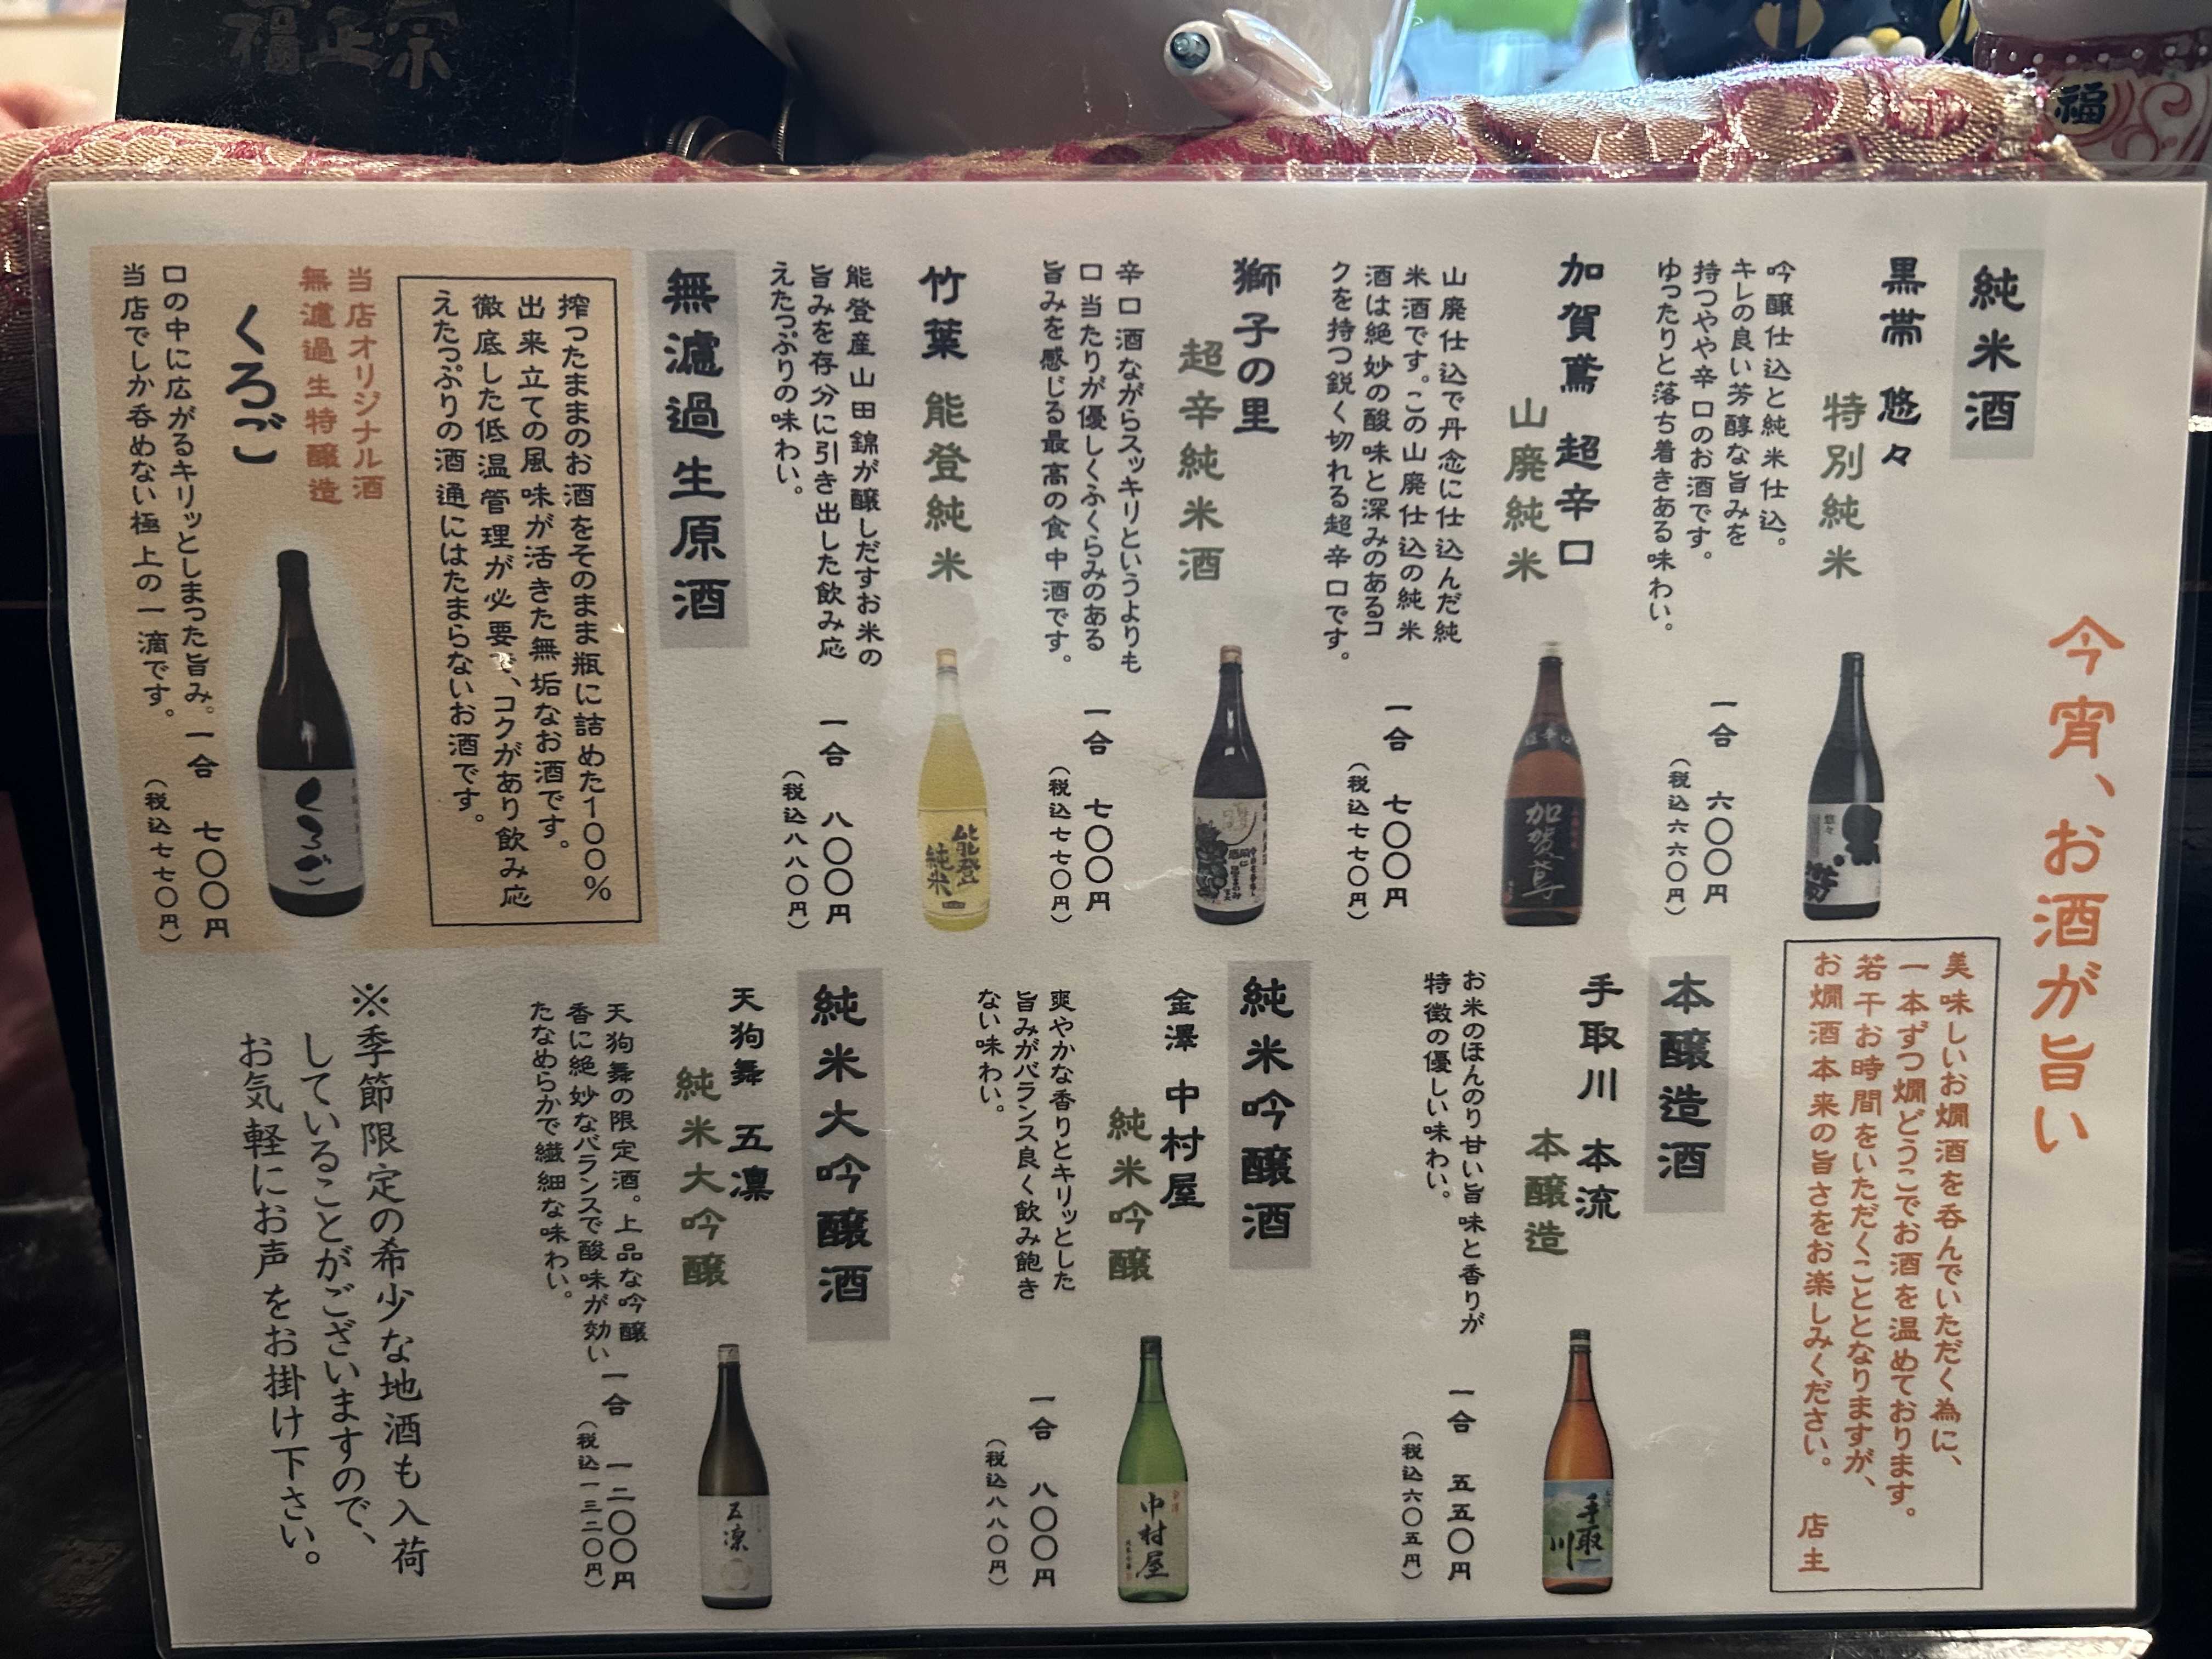 福正宗
福
今宵、お酒が旨い
純米酒
黒帯 悠々
特別純米
吟醸仕込と純米仕込。
キレの良い芳醇な旨みを
持つやや辛口のお酒です。
ゆったりと落ち着きある味わい。
一合 六〇〇円
（税込六六〇円）
加賀鳶 超辛口
山廃純米
山廃仕込で丹念に仕込んだ純
米酒です。この山廃仕込の純米
酒は絶妙の酸味と深みのあるコ
クを持つ鋭く切れる超辛口です。
一合 七〇〇円
（税込七七〇円）
加賀鳶
獅子の里
超辛純米酒
辛口酒ながらスッキリというよりも
口当たりが優しくふくらみのある
旨みを感じる最高の食中酒です。
一合 七〇〇円
（税込七七〇円）
竹葉 能登純米
能登産山田錦が醸しだすお米の
旨みを存分に引き出した飲み応
えたっぷりの味わい。
一合 八〇〇円
（税込八八〇円）
能登
純米
無濾過生原酒
搾ったままのお酒をそのまま瓶に詰めた100%
出来立ての風味が活きた無垢なお酒です。
徹底した低温管理が必要で、コクがあり飲み応
えたっぷりの酒通にはたまらないお酒です。
当店オリジナル酒
無濾過生特醸造
くろご
口の中に広がるキリッとしまった旨み。
当店でしか呑めない極上の一滴です。
一合 七〇〇円
（税込七七〇円）
くろご
美味しいお燗酒を呑んでいただく為に、
一本ずつ燗どうこでお酒を温めております。
若干お時間をいただくこととなりますが、
お燗酒本来の旨さをお楽しみください。 店主
本醸造酒
手取川 本流
本醸造
お米のほんのり甘い旨味と香りが
特徴の優しい味わい。
一合 五五〇円
（税込六〇五円）
手取川
純米吟醸酒
金澤 中村屋
純米吟醸
爽やかな香りとキリッとした
旨みがバランス良く飲み飽き
ない味わい。
一合 八〇〇円
（税込八八〇円）
中村屋
純米大吟醸酒
天狗舞 五凛
純米大吟醸
天狗舞の限定酒。上品な吟醸
香に絶妙なバランスで酸味が効い
たなめらかで繊細な味わい。
一合 一二〇〇円
（税込一三二〇円）
五凛
※季節限定の希少な地酒も入荷
していることがございますので、
お気軽にお声をお掛け下さい。